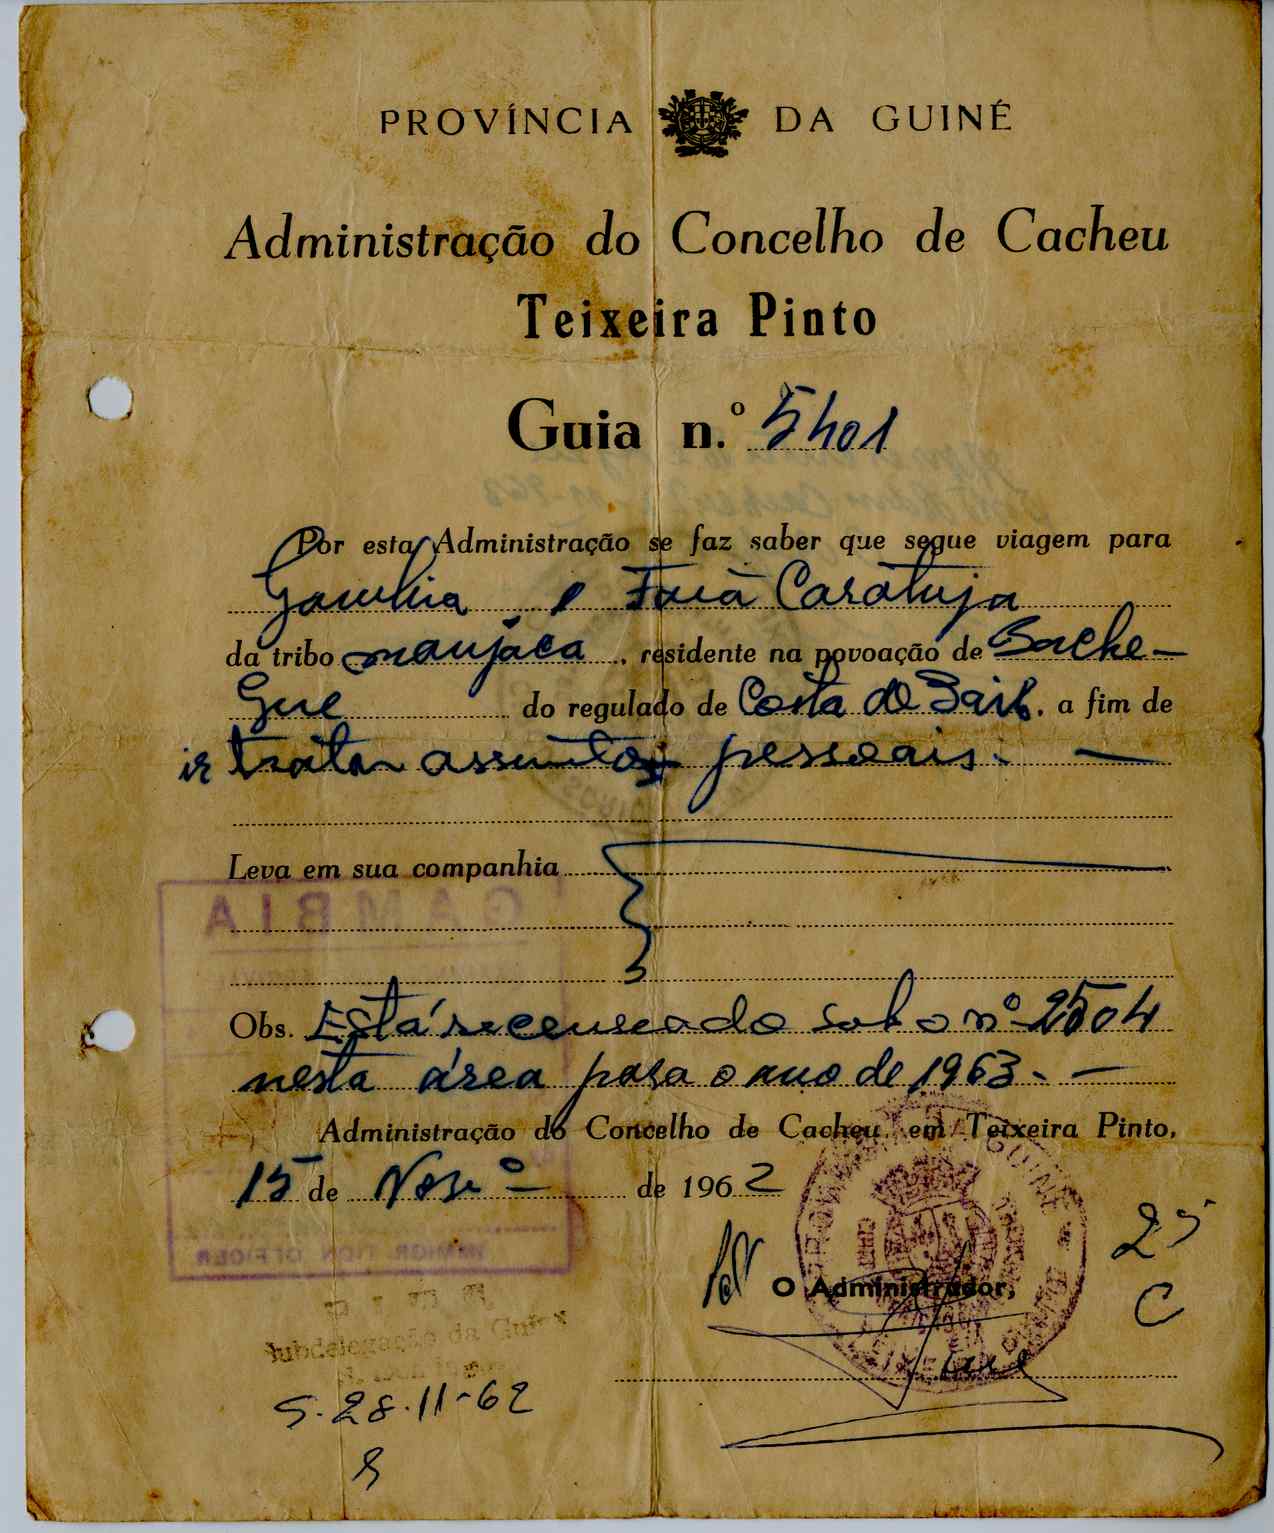 PROVÍNCIA DA GUINÉ
Administração do Concelho de Cacheu
Teixeira Pinto
Guia n.º 5401
Por esta Administração se faz saber que segue viagem para
Gambia, o
da tribo manjaca, residente na povoação de Bache-
Gue do regulado de Costa de Baixo, a fim de
ir tratar assuntos pessoais. —
Leva em sua companhia
Obs. Está recenseado sob o nº 2504
nesta área para o ano de 1963. —
Administração do Concelho de Cacheu, em Teixeira Pinto,
15 de Novº de 1962
O Administrador,
GAMBIA
Subdelegação da Guiné
S. 28-11-62